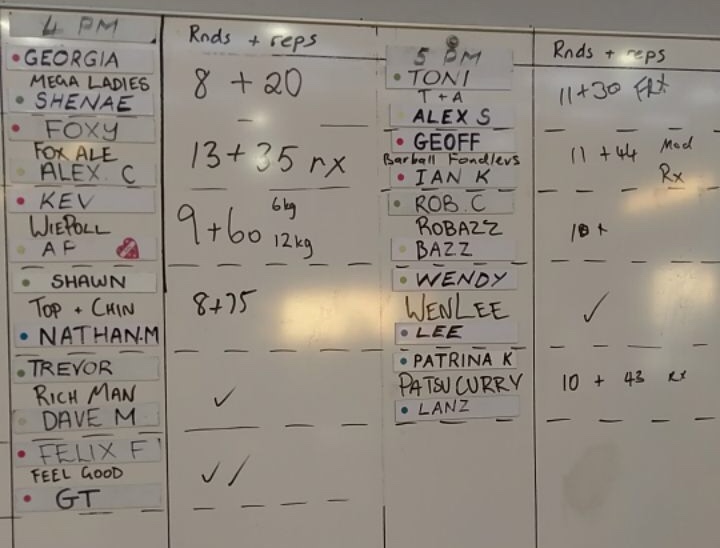 4 PM
Rnds + reps
GEORGIA
MEGA LADIES
SHENAE
8 + 20
FOXY
FOX ALE
ALEX. C
13 + 35 rx
KEV
WIEPOLL
AF
9+60 6kg
12kg
SHAWN
TOP + CHIN
NATHAN.M
8+75
TREVOR
RICH MAN
DAVE M
✓
FELIX F
FEEL GOOD
GT
✓✓
5 PM
Rnds + reps
TONI
T + A
ALEX S
11+30
GEOFF
Barball Fondlers
IAN K
11 + 44 Mod
Rx
ROB.C
ROBAZZ
BAZZ
10 +
WENDY
WENLEE
LEE
✓
PATRINA K
PATSU CURRY
LANZ
10 + 43 Rx